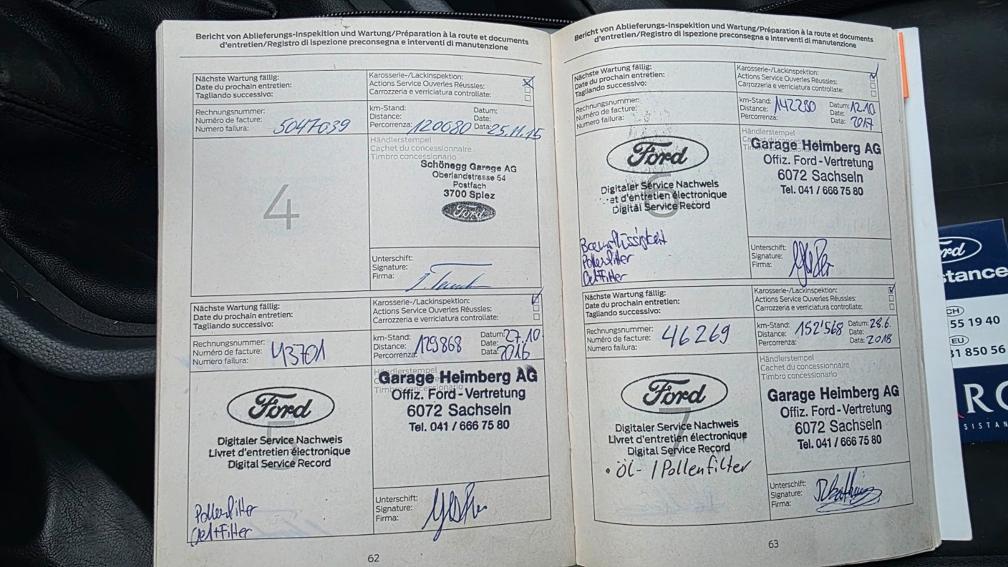 Bericht von Ablieferungs-Inspektion und Wartung/Préparation à la route et documents
d'entretien/Registro di ispezione preconsegna e interventi di manutenzione
Nächste Wartung fällig:
Date du prochain entretien:
Tagliando successivo:
Karosserie-/Lackinspektion:
Actions Service Ouverles Réussies:
Carrozzeria e verriciatura controllate:
Rechnungsnummer:
Numéro de facture:
Numero failura:
5047039
km-Stand:
Distance:
Percorrenza:
120080
Datum:
Date:
Data:
25.11.15
4
Händlerstempel
Cachet du concessionnaire
Timbro concessionario
Schönegg Garage AG
Oberlandstrasse 54
Postfach
3700 Spiez
Ford
Unterschift:
Signature:
Firma:
Nächste Wartung fällig:
Date du prochain entretien:
Tagliando successivo:
Karosserie-/Lackinspektion:
Actions Service Ouverles Réussies:
Carrozzeria e verriciatura controllate:
Rechnungsnummer:
Numéro de facture:
Numero failura:
43701
km-Stand:
Distance:
Percorrenza:
129868
Datum:
Date:
Data:
27.10
2016
Ford
Digitaler Service Nachweis
Livret d'entretien électronique
Digital Service Record
Pollenfilter
Oel+Filter
Händlerstempel
Garage Heimberg AG
Offiz. Ford-Vertretung
6072 Sachseln
Tel. 041 / 666 75 80
Unterschift:
Signature:
Firma:
62
Bericht von Ablieferungs-Inspektion und Wartung/Préparation à la route et documents
d'entretien/Registro di ispezione preconsegna e interventi di manutenzione
Nächste Wartung fällig:
Date du prochain entretien:
Tagliando successivo:
Karosserie-/Lackinspektion:
Actions Service Ouverles Réussies:
Carrozzeria e verriciatura controllate:
Rechnungsnummer:
Numéro de facture:
Numero failura:
km-Stand:
Distance:
Percorrenza:
142280
Datum:
Date:
Data:
12.10
2017
6
Ford
Digitaler Service Nachweis
et d'entretien électronique
Digital Service Record
Bremsflüssigkeit
Pollenfilter
Oel+Filter
Händlerstempel
Garage Heimberg AG
Offiz. Ford-Vertretung
6072 Sachseln
Tel. 041 / 666 75 80
Unterschift:
Signature:
Firma:
Nächste Wartung fällig:
Date du prochain entretien:
Tagliando successivo:
Karosserie-/Lackinspektion:
Actions Service Ouverles Réussies:
Carrozzeria e verriciatura controllate:
Rechnungsnummer:
Numéro de facture:
Numero failura:
46269
km-Stand:
Distance:
Percorrenza:
152'568
Datum:
Date:
Data:
28.6.
2018
7
Ford
Digitaler Service Nachweis
Livret d'entretien électronique
Digital Service Record
• Öl- / Pollenfilter
Händlerstempel
Cachet du concessionnaire
Timbro concessionario
Garage Heimberg AG
Offiz. Ford-Vertretung
6072 Sachseln
Tel. 041 / 666 75 80
Unterschift:
Signature:
Firma:
63
CH
55 19 40
EU
850 56